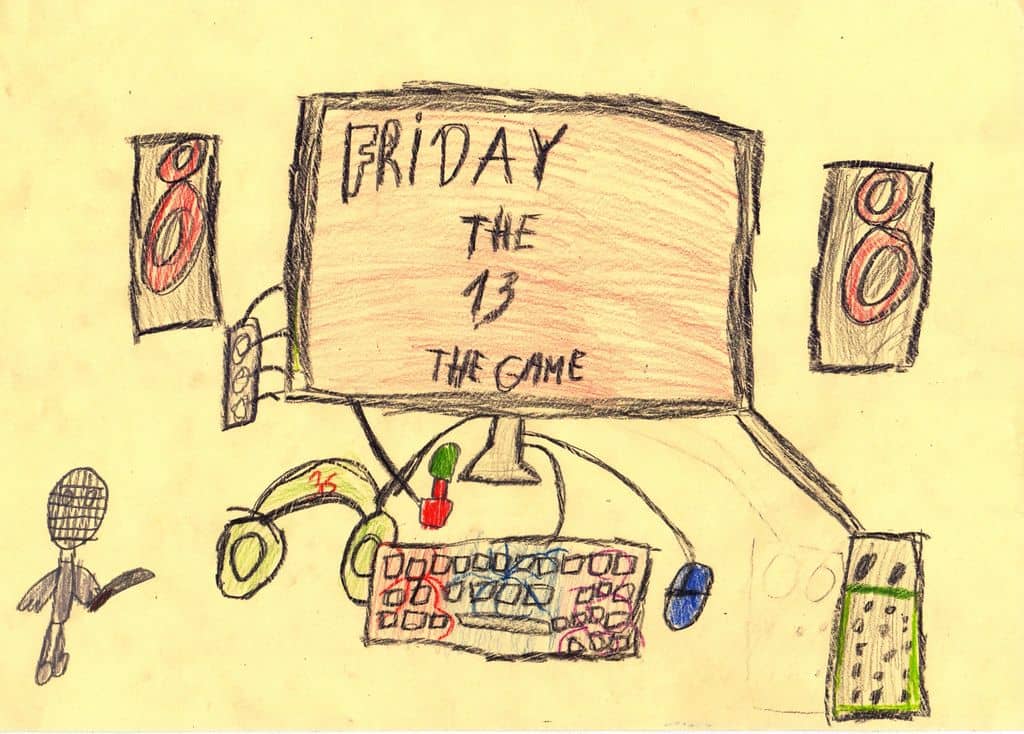 FRiDAY
THE
13
THE GAME